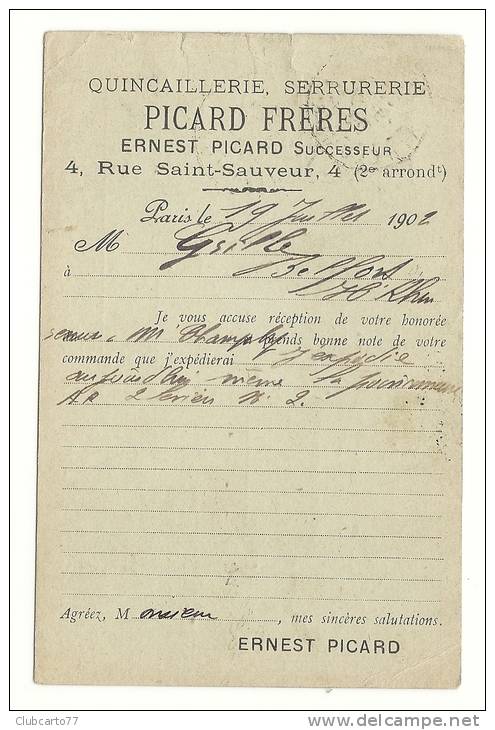 QUINCAILLERIE, SERRURERIE
PICARD FRÈRES
ERNEST PICARD SUCCESSEUR
4, Rue Saint-Sauveur, 4 (2e arrondt)
Paris le 19 Juillet 1902
M
à Belfort
Ht Rhin
Je vous accuse réception de votre honorée
M Champ ends bonne note de votre
commande que j'expédierai j'expédie
aujourd'hui même la
2 N. 2.
Agréez, Monsieur, mes sincères salutations.
ERNEST PICARD
Clubcarto77
www.delcampe.net